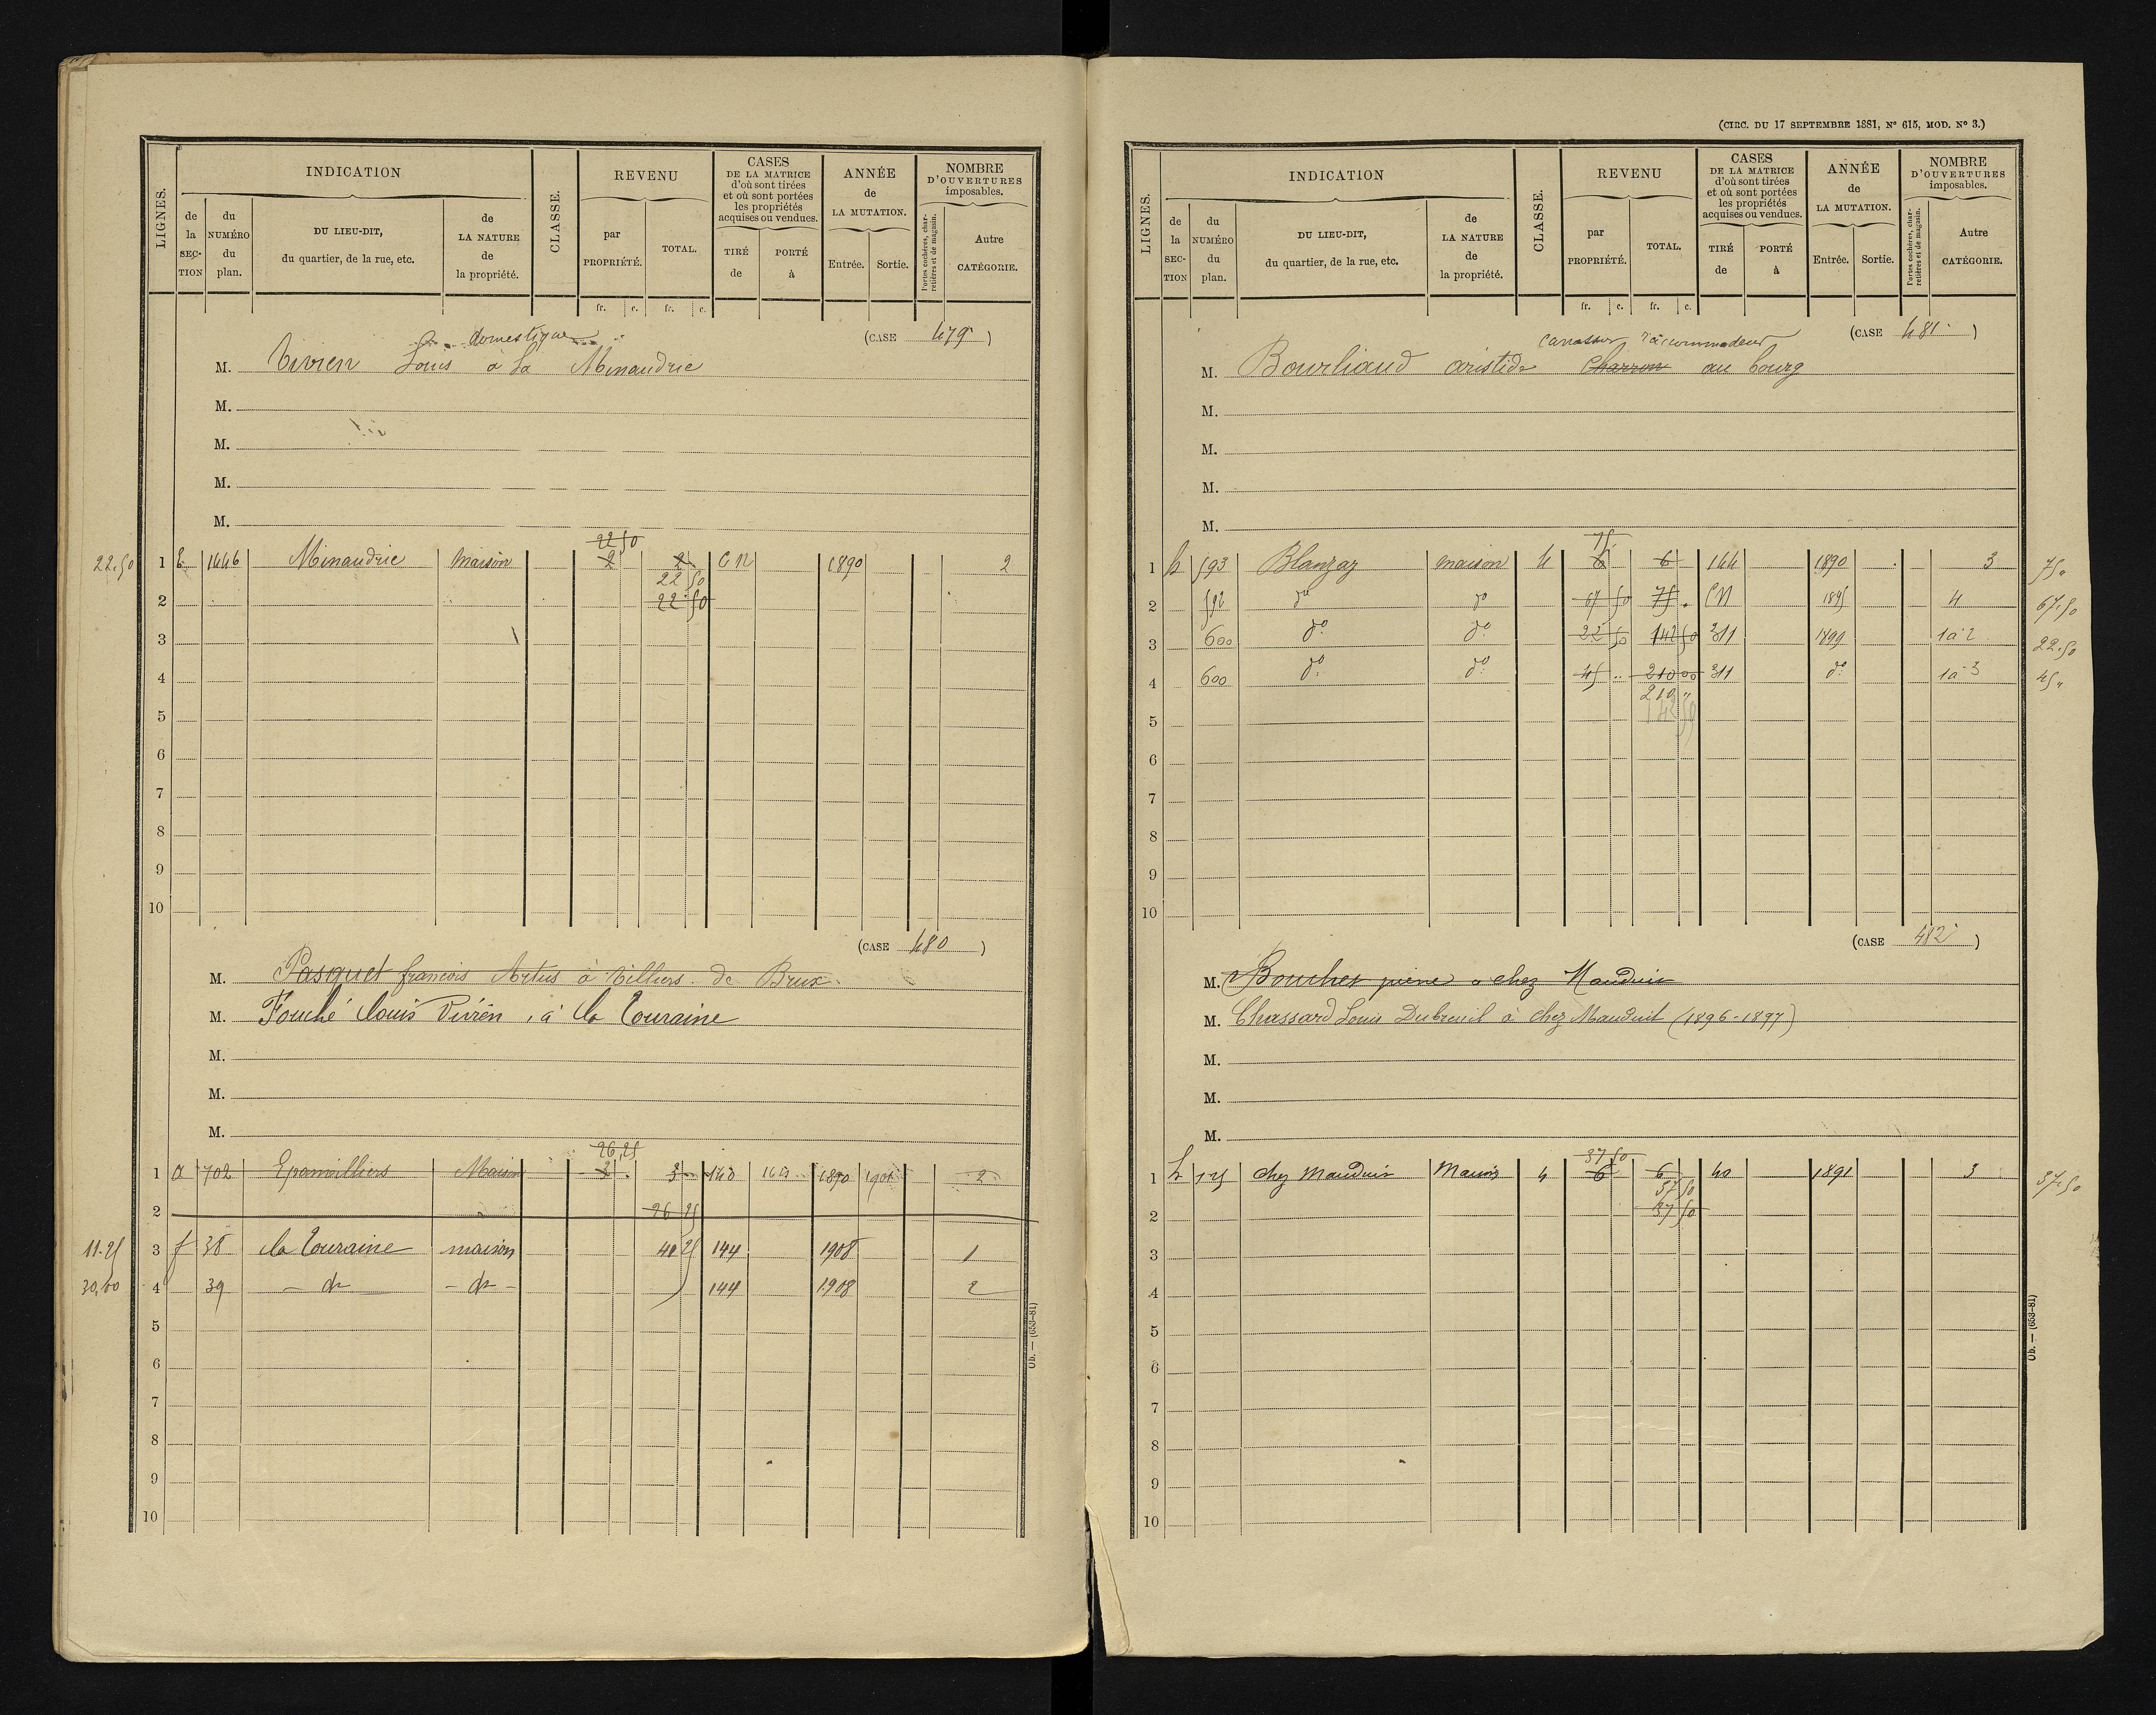 LIGNES.
INDICATION
de la SEC-TION
du NUMÉRO du plan.
DU LIEU-DIT, du quartier, de la rue, etc.
de LA NATURE de la propriété.
CLASSE.
REVENU
par PROPRIÉTÉ.
TOTAL.
CASES DE LA MATRICE d'où sont tirées et où sont portées les propriétés acquises ou vendues.
TIRÉ de
PORTÉ à
ANNÉE de LA MUTATION.
Entrée.
Sortie.
NOMBRE D'OUVERTURES imposables.
Portes cochères, charretières et de magasin.
Autre CATÉGORIE.
fr. c. fr. c.
domestique
(CASE 479)
M. Vivien Louis à la Minaudrie
M.
M.
M.
M.
22 50
22.50 1 E 1446 Minaudrie maison 2 2 CN 1890 2
22 50
2 22 50
3
4
5
6
7
8
9
10
(CASE 480)
M. Pasquet françois Artus à Villiers de Brux
M. Fouché Louis Vivien, à la Touraine
M.
M.
M.
26,25
1 a 702 Epanvilliers Maison 3 3 140 1890 1901 2
2 26 25
11.25 3 f 38 la Touraine maison 41 25 144 1908 1
30,00 4 39 - do - - do - 144 1908 2
5
6
7
8
9
10
Ob. — (653-81)
(CIRC. DU 17 SEPTEMBRE 1881, Nº 615, MOD. Nº 3.)
LIGNES.
INDICATION
de la SEC-TION
du NUMÉRO du plan.
DU LIEU-DIT, du quartier, de la rue, etc.
de LA NATURE de la propriété.
CLASSE.
REVENU
par PROPRIÉTÉ.
TOTAL.
CASES DE LA MATRICE d'où sont tirées et où sont portées les propriétés acquises ou vendues.
TIRÉ de
PORTÉ à
ANNÉE de LA MUTATION.
Entrée.
Sortie.
NOMBRE D'OUVERTURES imposables.
Portes cochères, charretières et de magasin.
Autre CATÉGORIE.
fr. c. fr. c.
(CASE 481)
M. Bourliaud aristide Charron au bourg
M.
M.
M.
M.
75
1 h 593 Blanzay maison 4 6 6 144 1890 3 75 "
2 592 do do 67 50 75 . CN 1895 4 67.50
3 600 do do 22 50 142 50 311 1899 1à2 22.50
4 600 do do 45 .. 210 00 311 do 1à3 45 "
210 "
5 142 50
6
7
8
9
10
(CASE 482)
M. Boucher pierre à chez Mauduit
M. Chassard Louis Dubreuil à chez Mauduit (1896-1897)
M.
M.
M.
37 50
1 h 125 chez Mauduit Maison 4 6 6 40 1891 3 37.50
37 50
2 37 50
3
4
5
6
7
8
9
10
Ob. — (653-81)